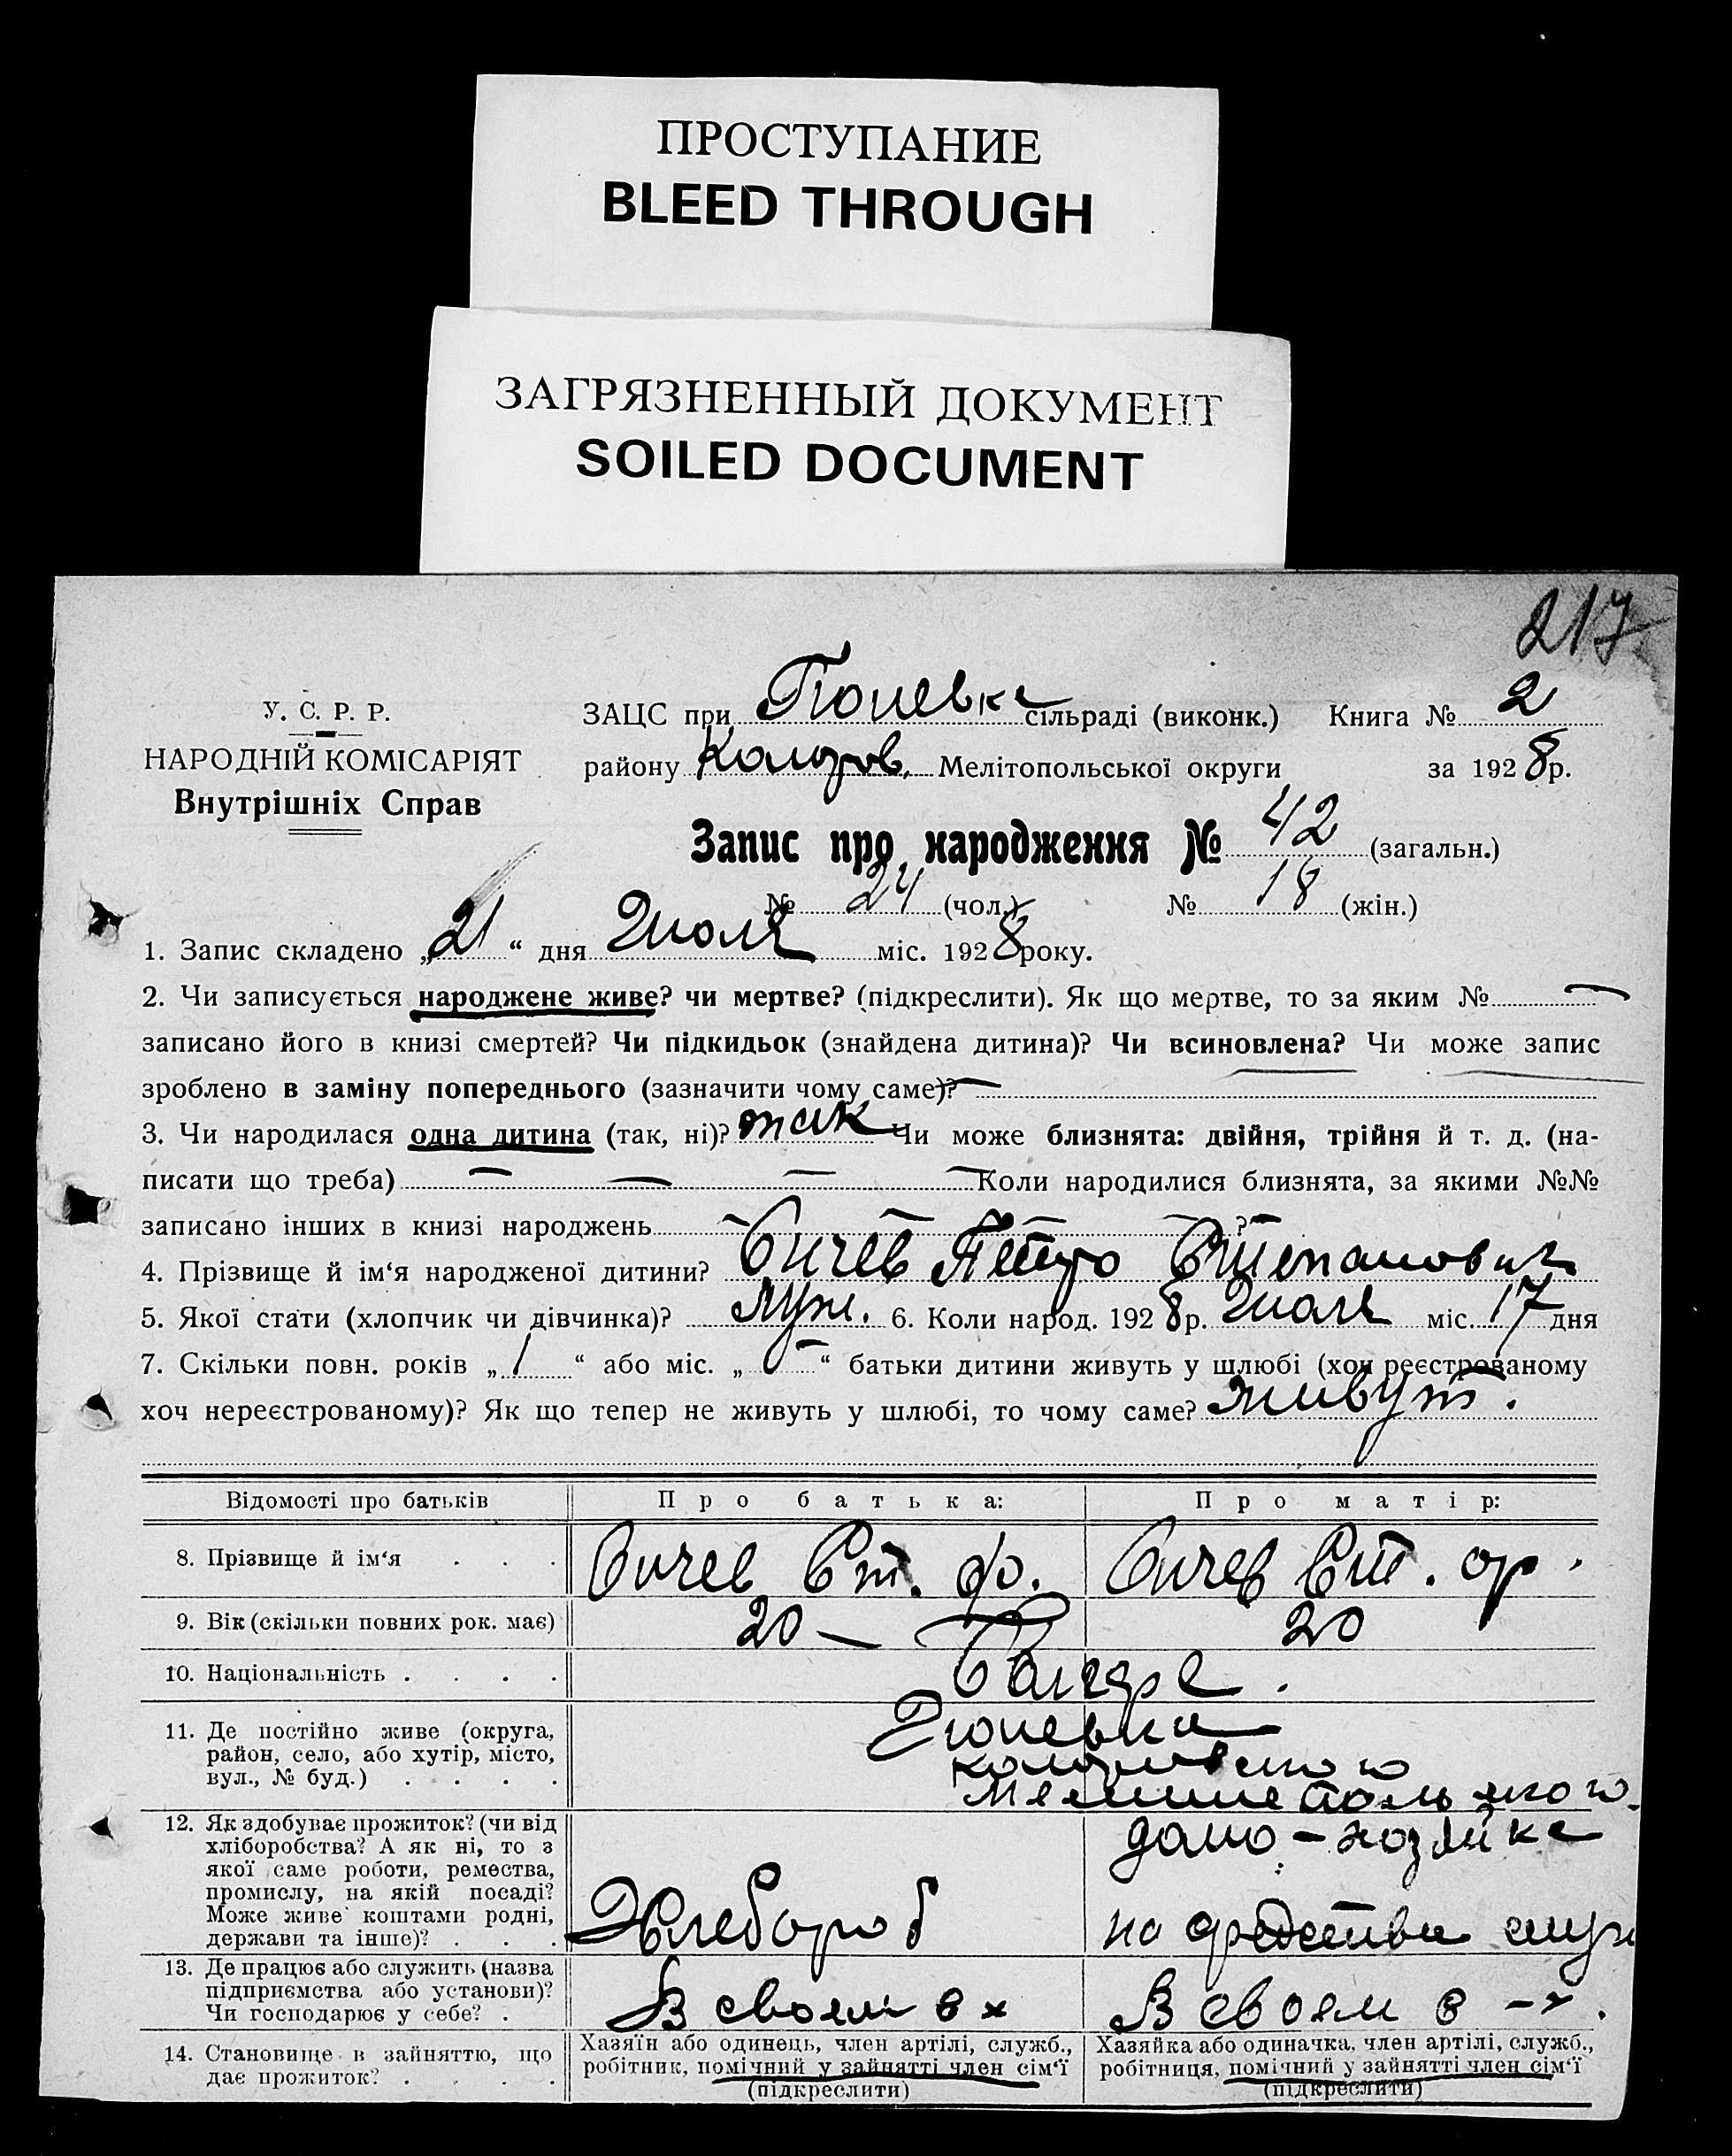 ПРОСТУПАНИЕ
BLEED THROUGH
ЗАГРЯЗНЕННЫЙ ДОКУМЕНТ
SOILED DOCUMENT
217
У. С. Р. Р.
НАРОДНІЙ КОМІСАРІЯТ
Внутрішніх Справ
ЗАЦС при сільраді (виконк.) Книга № 2
району Коларов. Мелітопольської округи за 1928 р.
Запис про народження № 42 (загальн.)
№ 24 (чол.) № 18 (жін.)
1. Запис складено „21“ дня Июля міс. 1928 року.
2. Чи записується народжене живе? чи мертве? (підкреслити). Як що мертве, то за яким № —
записано його в книзі смертей? Чи підкидьок (знайдена дитина)? Чи всиновлена? Чи може запис
зроблено в заміну попереднього (зазначити чому саме)? —
3. Чи народилася одна дитина (так, ні)? так Чи може близнята: двійня, трійня й т. д. (на-
писати що треба) — — — — Коли народилися близнята, за якими №№
записано інших в книзі народжень — — — — ?
4. Прізвище й ім‘я народженої дитини? Сичев Петро Степанович
5. Якої стати (хлопчик чи дівчинка)? муж. 6. Коли народ. 1928 р. Июля міс. 17 дня
7. Скільки повн. років „1“ або міс. „ “ батьки дитини живуть у шлюбі (хоч реєстрованому
хоч нереєстрованому)? Як що тепер не живуть у шлюбі, то чому саме? живут.
Відомості про батьків Про батька: Про матір:
8. Прізвище й ім‘я . . . Сичев Ст. ф. Сичев Ст.
9. Вік (скільки повних рок. має) 20 — 20
10. Національність . . . . Болгаре.
11. Де постійно живе (округа,
район, село, або хутір, місто,
вул., № буд.) . . . .
Коларовского
Мелитопольского.
12. Як здобуває прожиток? (чи від
хліборобства? А як ні, то з
якої саме роботи, ремества,
промислу, на якій посаді?
Може живе коштами родні,
держави та інше)? . . .
Хлебороб
домо-хозяйка
на средства
13. Де працює або служить (назва
підприємства або установи)?
Чи господарює у себе? .
В своем с х В своем с-х.
14. Становище в зайняттю, що
дає прожиток? . . . .
Хазяїн або одинець, член артілі, служб.,
робітник, помічний у зайнятті член сім‘ї
(підкреслити)
Хазяйка або одиначка, член артілі, служб.,
робітниця, помічний у зайнятті член сім‘ї
(підкреслити)